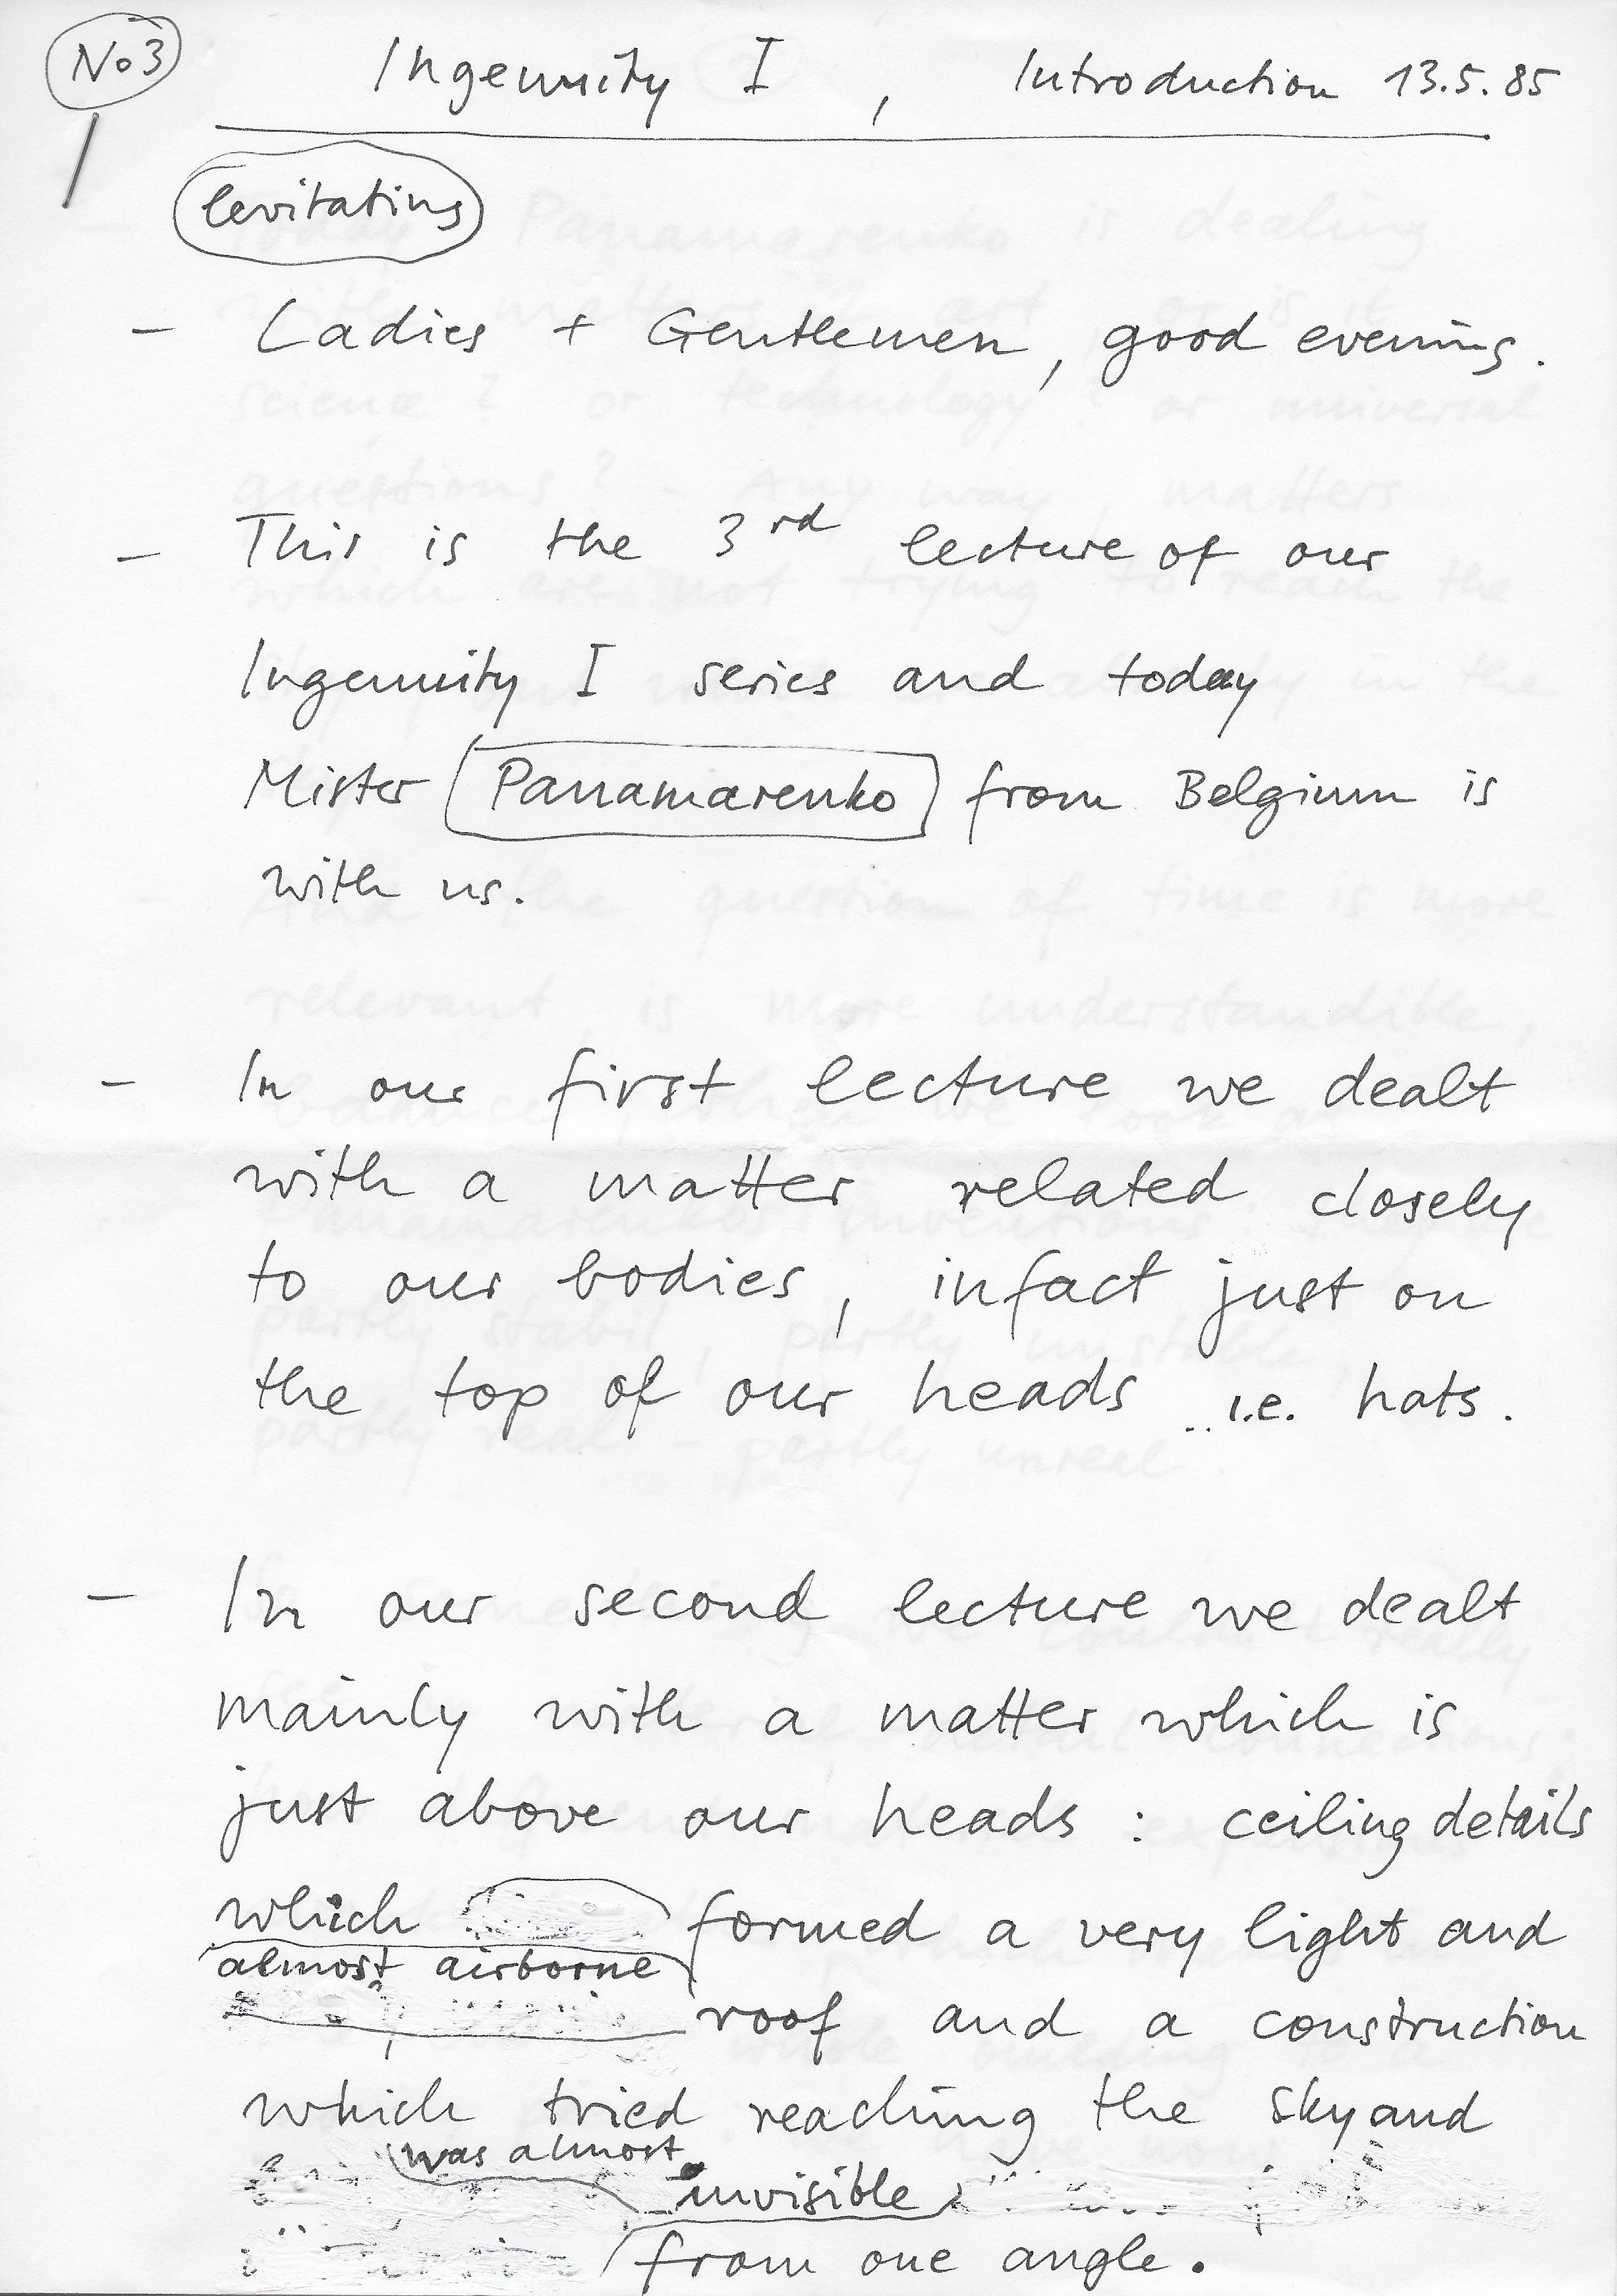 No 3
Ingenuity I , Introduction 13.5.85
levitating
– Ladies + Gentlemen, good evening.
– This is the 3rd lecture of our
Ingenuity I series and today
Mister Panamarenko from Belgium is
with us.
– In our first lecture we dealt
with a matter related closely
to our bodies, infact just on
the top of our heads .. i.e. hats.
– In our second lecture we dealt
mainly with a matter which is
just above our heads : ceiling details
which formed a very light and
almost airborne
roof and a construction
which tried reaching the sky and
was almost
invisible
from one angle.